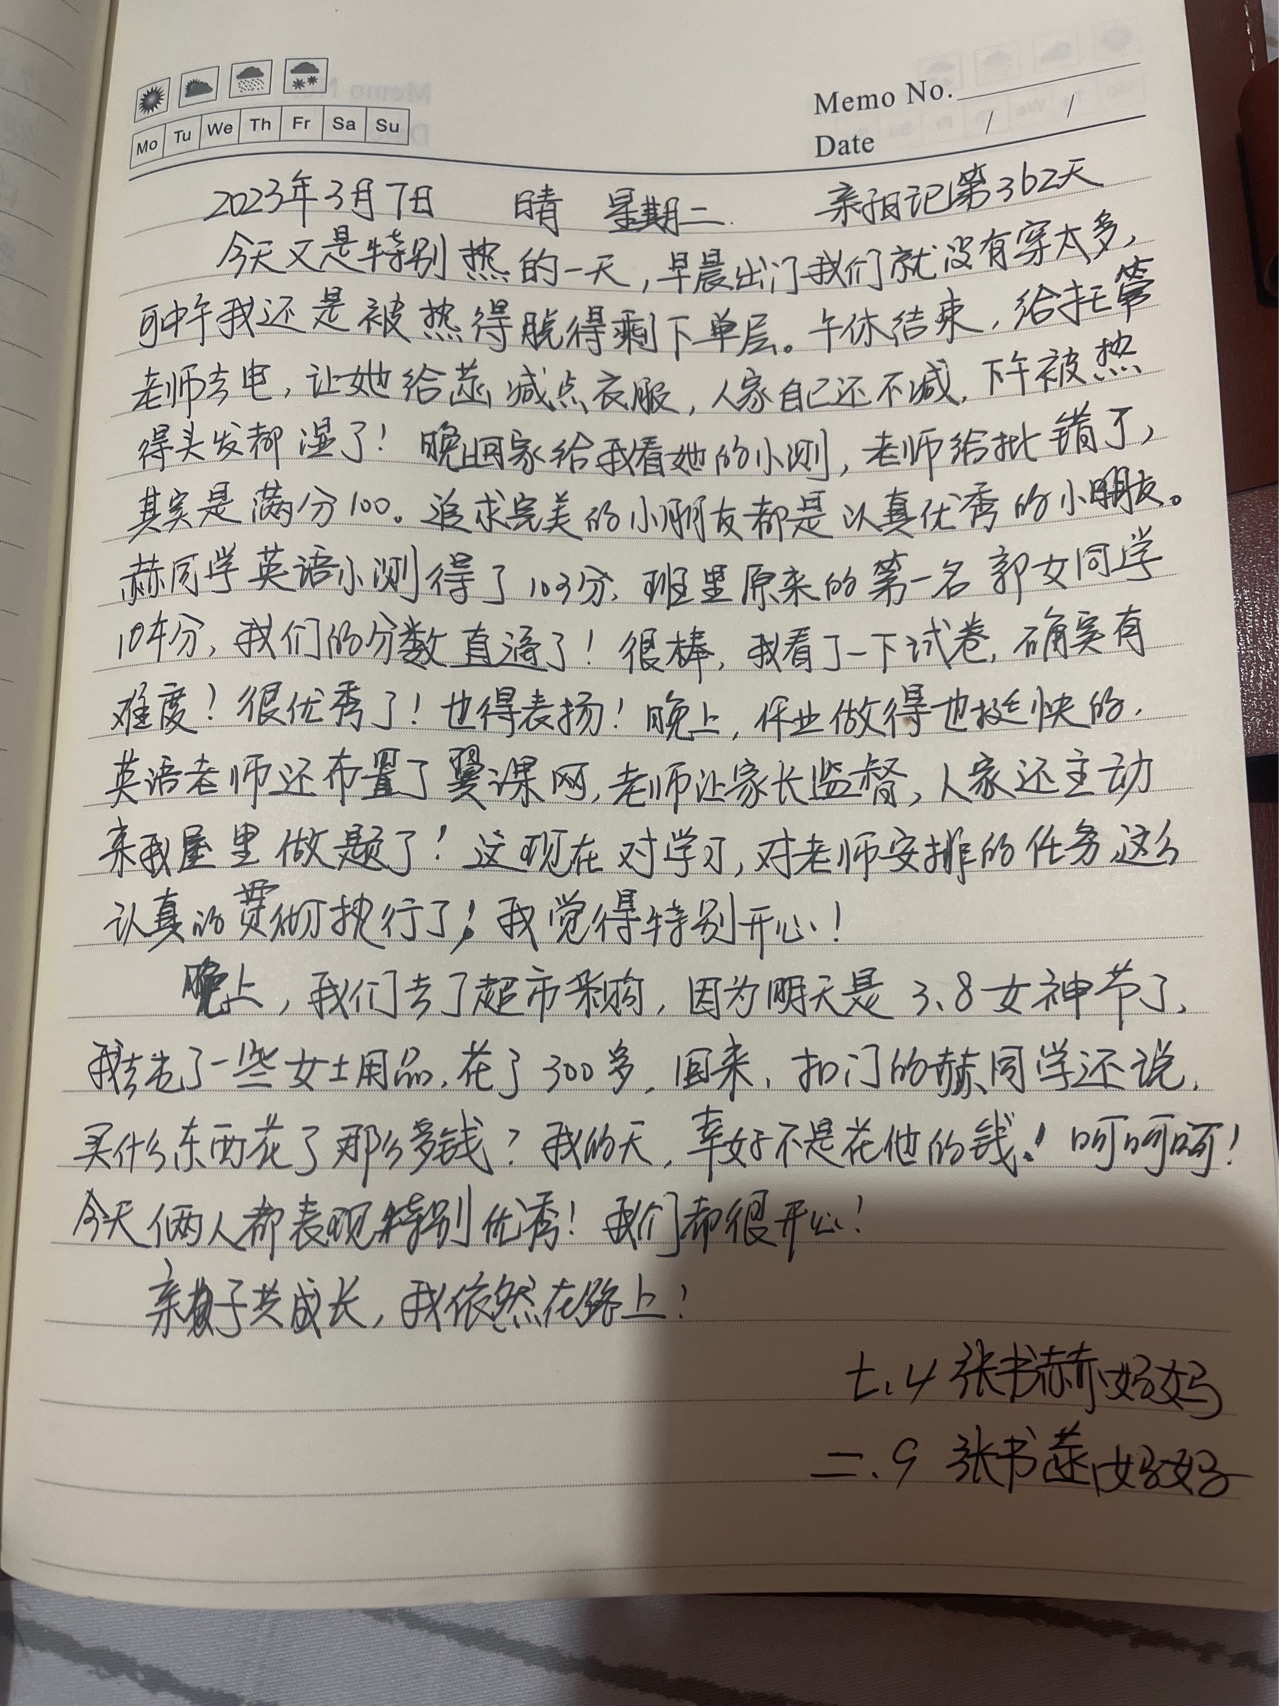 Memo No.
Mo Tu We Th Fr Sa Su
Date / /
2023年3月7日 晴 星期二 亲子日记第362天
今天又是特别热的一天,早晨出门我们就没有穿太多,
可中午我还是被热得脱得剩下单层。午休结束,给托管
老师去电,让她给蕊减点衣服,人家自己还不减,下午被热
得头发都湿了!晚上回家给我看她的小测,老师给批错了,
其实是满分100。追求完美的小朋友都是认真优秀的小朋友。
赫同学英语小测得了103分,班里原来的第一名郭女同学
104分,我们的分数直逼了!很棒,我看了一下试卷,确实有
难度!很优秀了!也得表扬!晚上,作业做得也挺快的,
英语老师还布置了翼课网,老师让家长监督,人家还主动
来我屋里做题了!这现在对学习,对老师安排的任务这么
认真的贯彻执行了!我觉得特别开心!
晚上,我们去了超市采购,因为明天是3.8女神节了,
我去先了一些女士用品,花了300多,回来,扣门的赫同学还说,
买什么东西花了那么多钱?我的天,幸好不是花他的钱!呵呵呵!
今天俩人都表现特别优秀!我们都很开心!
亲子共成长,我依然在路上!
七.4 张书赫妈妈
二.9 张书蕊妈妈